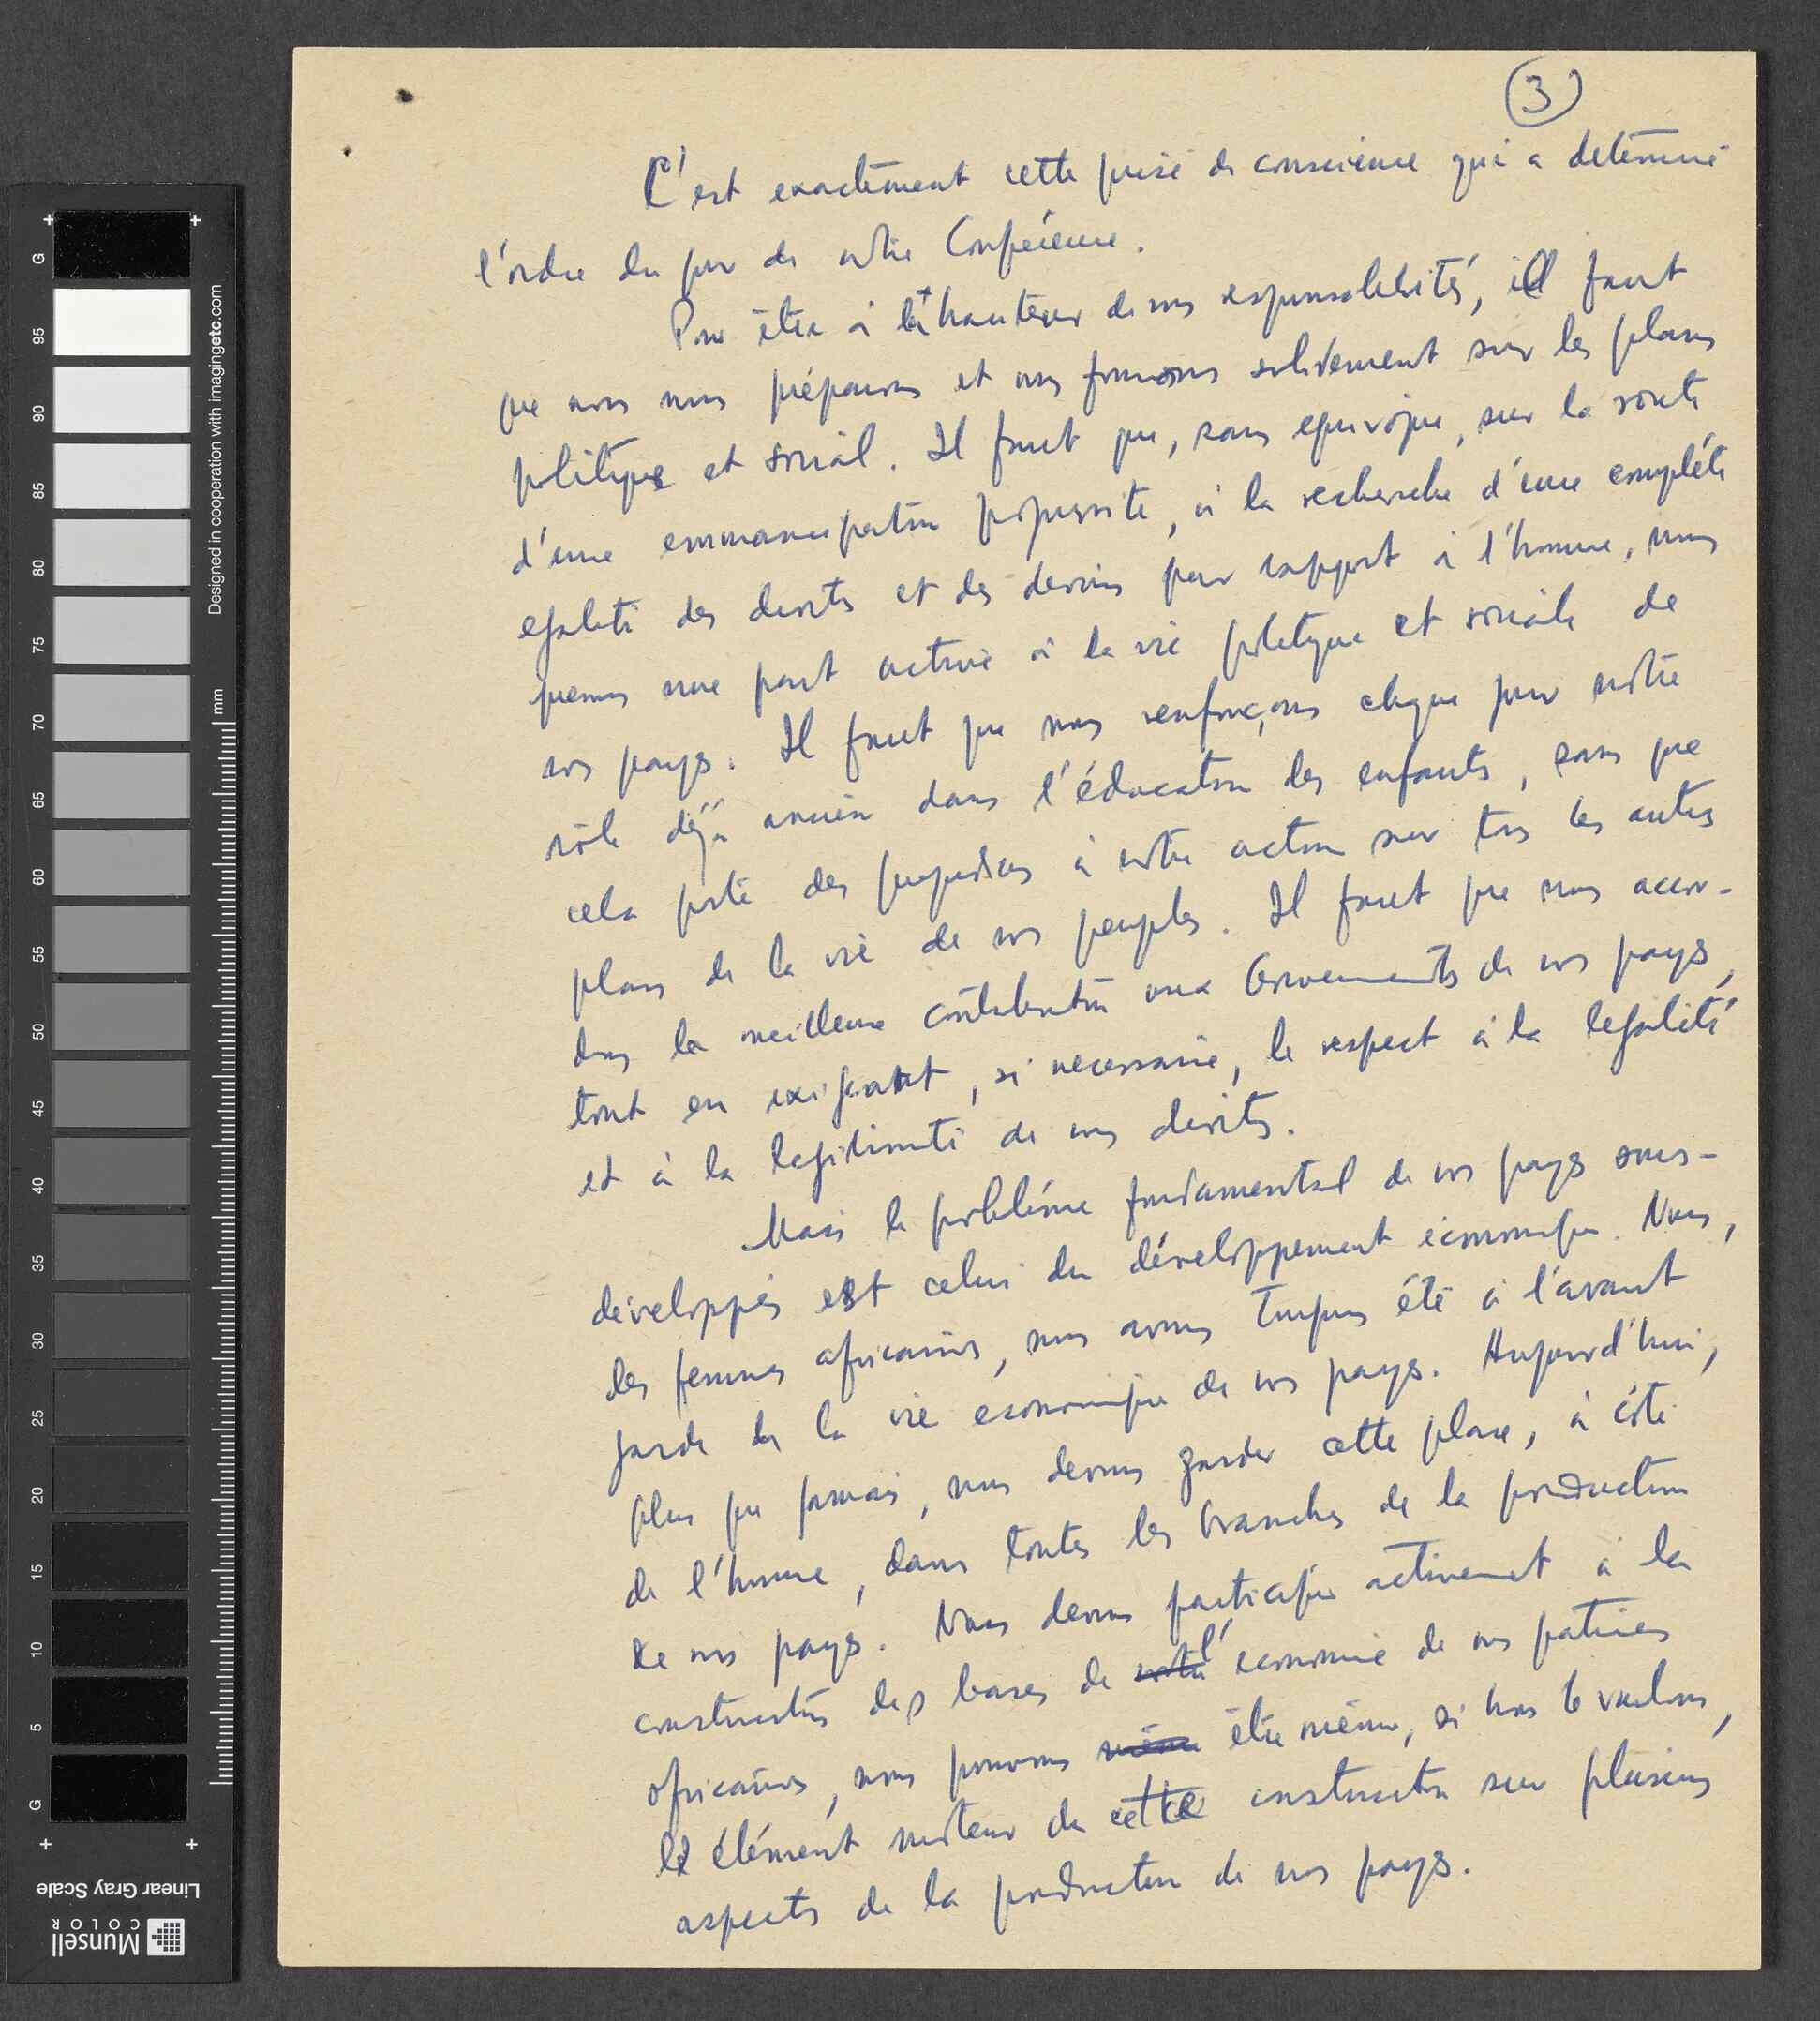 3
C'est exactement cette prise de conscience qui a determiné
l'ordre du jour de notre Conférence.
Pour être à la hauteur de nos responsabilités, il faut
que nous nous préparons et nous formons solidement sur les plans
politique et social. Il faut que, sans equivoque, sur la route
d'une emmancipation progressite, à la recherche d'une complète
egalité des droits et des devoirs par rapport à l'homme, nous
prenons une part active à la vie politique et sociale de
nos pays. Il faut que nous renforçons chaque jour nôtre
rôle dejà ancien dans l'éducation des enfants, sans que
cela porte des prejudices à notre action sur tous les autres
plans de la vie de nos peuples. Il faut que nous accor-
dons la meilleure contribution aux Gouvernements de nos pays,
tout en exigeant, si necessaire, le respect à la legalité
et à la legitimité de nos droits.
Mais le problème fondamental de nos pays sous-
développés est celui du développement économique. Nous,
les femmes africaines, nous avons toujours été à l'avant
garde de la vie economique de nos pays. Aujourd'hui,
plus que jamais, nous devons garder cette place, à côté
de l'homme, dans toutes les branches de la production
de nos pays. Nous devons participer activement à la
construction des bases de notre l'économie de nos patries
africaines, nous pouvons même être même, si nous le voulons,
l'élément moteur de cette construction sur plusieurs
aspects de la production de nos pays.
G
95
90
85
80
75
70
65
60
55
50
45
40
35
30
25
20
15
10
5
G
Designed in cooperation with imagingetc.com
mm
Linear Gray Scale
Munsell
COLOR